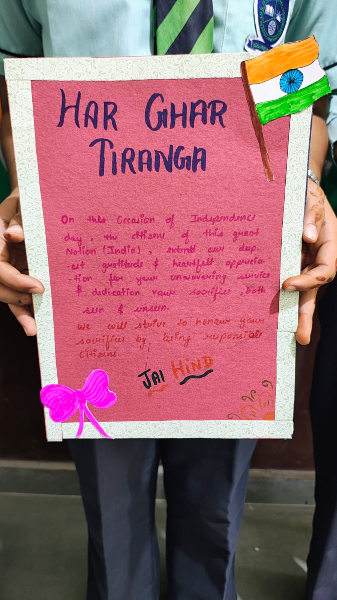 HAR GHAR
TIRANGA
On this Occasion of Independence
day, the citizens of this great
Nation (India), submit our deep-
est gratitude & heartfelt apprecia
-tion for your unwavering service
& dedication your sacrifices, both
seen & unseen.
We will strive to honour your
sacrifices by, being responsible
citizens.
JAI HIND